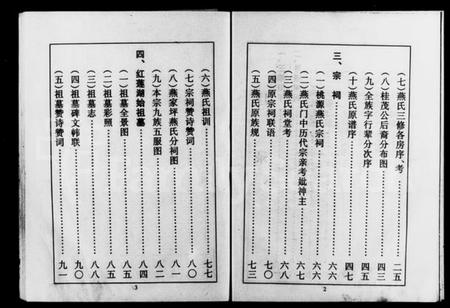 (七)燕氏三修各房序、考……二五
(八)桂茂公后裔分布图……四三
(九)全族字行辈分次序……四五
(十)燕氏原谱序……四七
三、宗祠……六六
(一)桃源燕氏宗祠……六六
(二)燕氏门中历代宗亲考妣神主……六六
(三)燕氏祠堂考……六八
(四)原宗祠联语……七〇
(五)燕氏原族规……七三
2
(六)燕氏祖训……七七
(七)宗祠赞诗赞词……八〇
(八)燕家坪燕氏分祠图……八一
(九)本宗九族五服图……八二
四、红莲湖始祖墓……八四
(一)祖墓全景图……八五
(二)祖墓彩照……八五
(三)祖墓志……八八
(四)祖墓碑文韩联……九〇
(五)祖墓赞诗赞词……九一
3